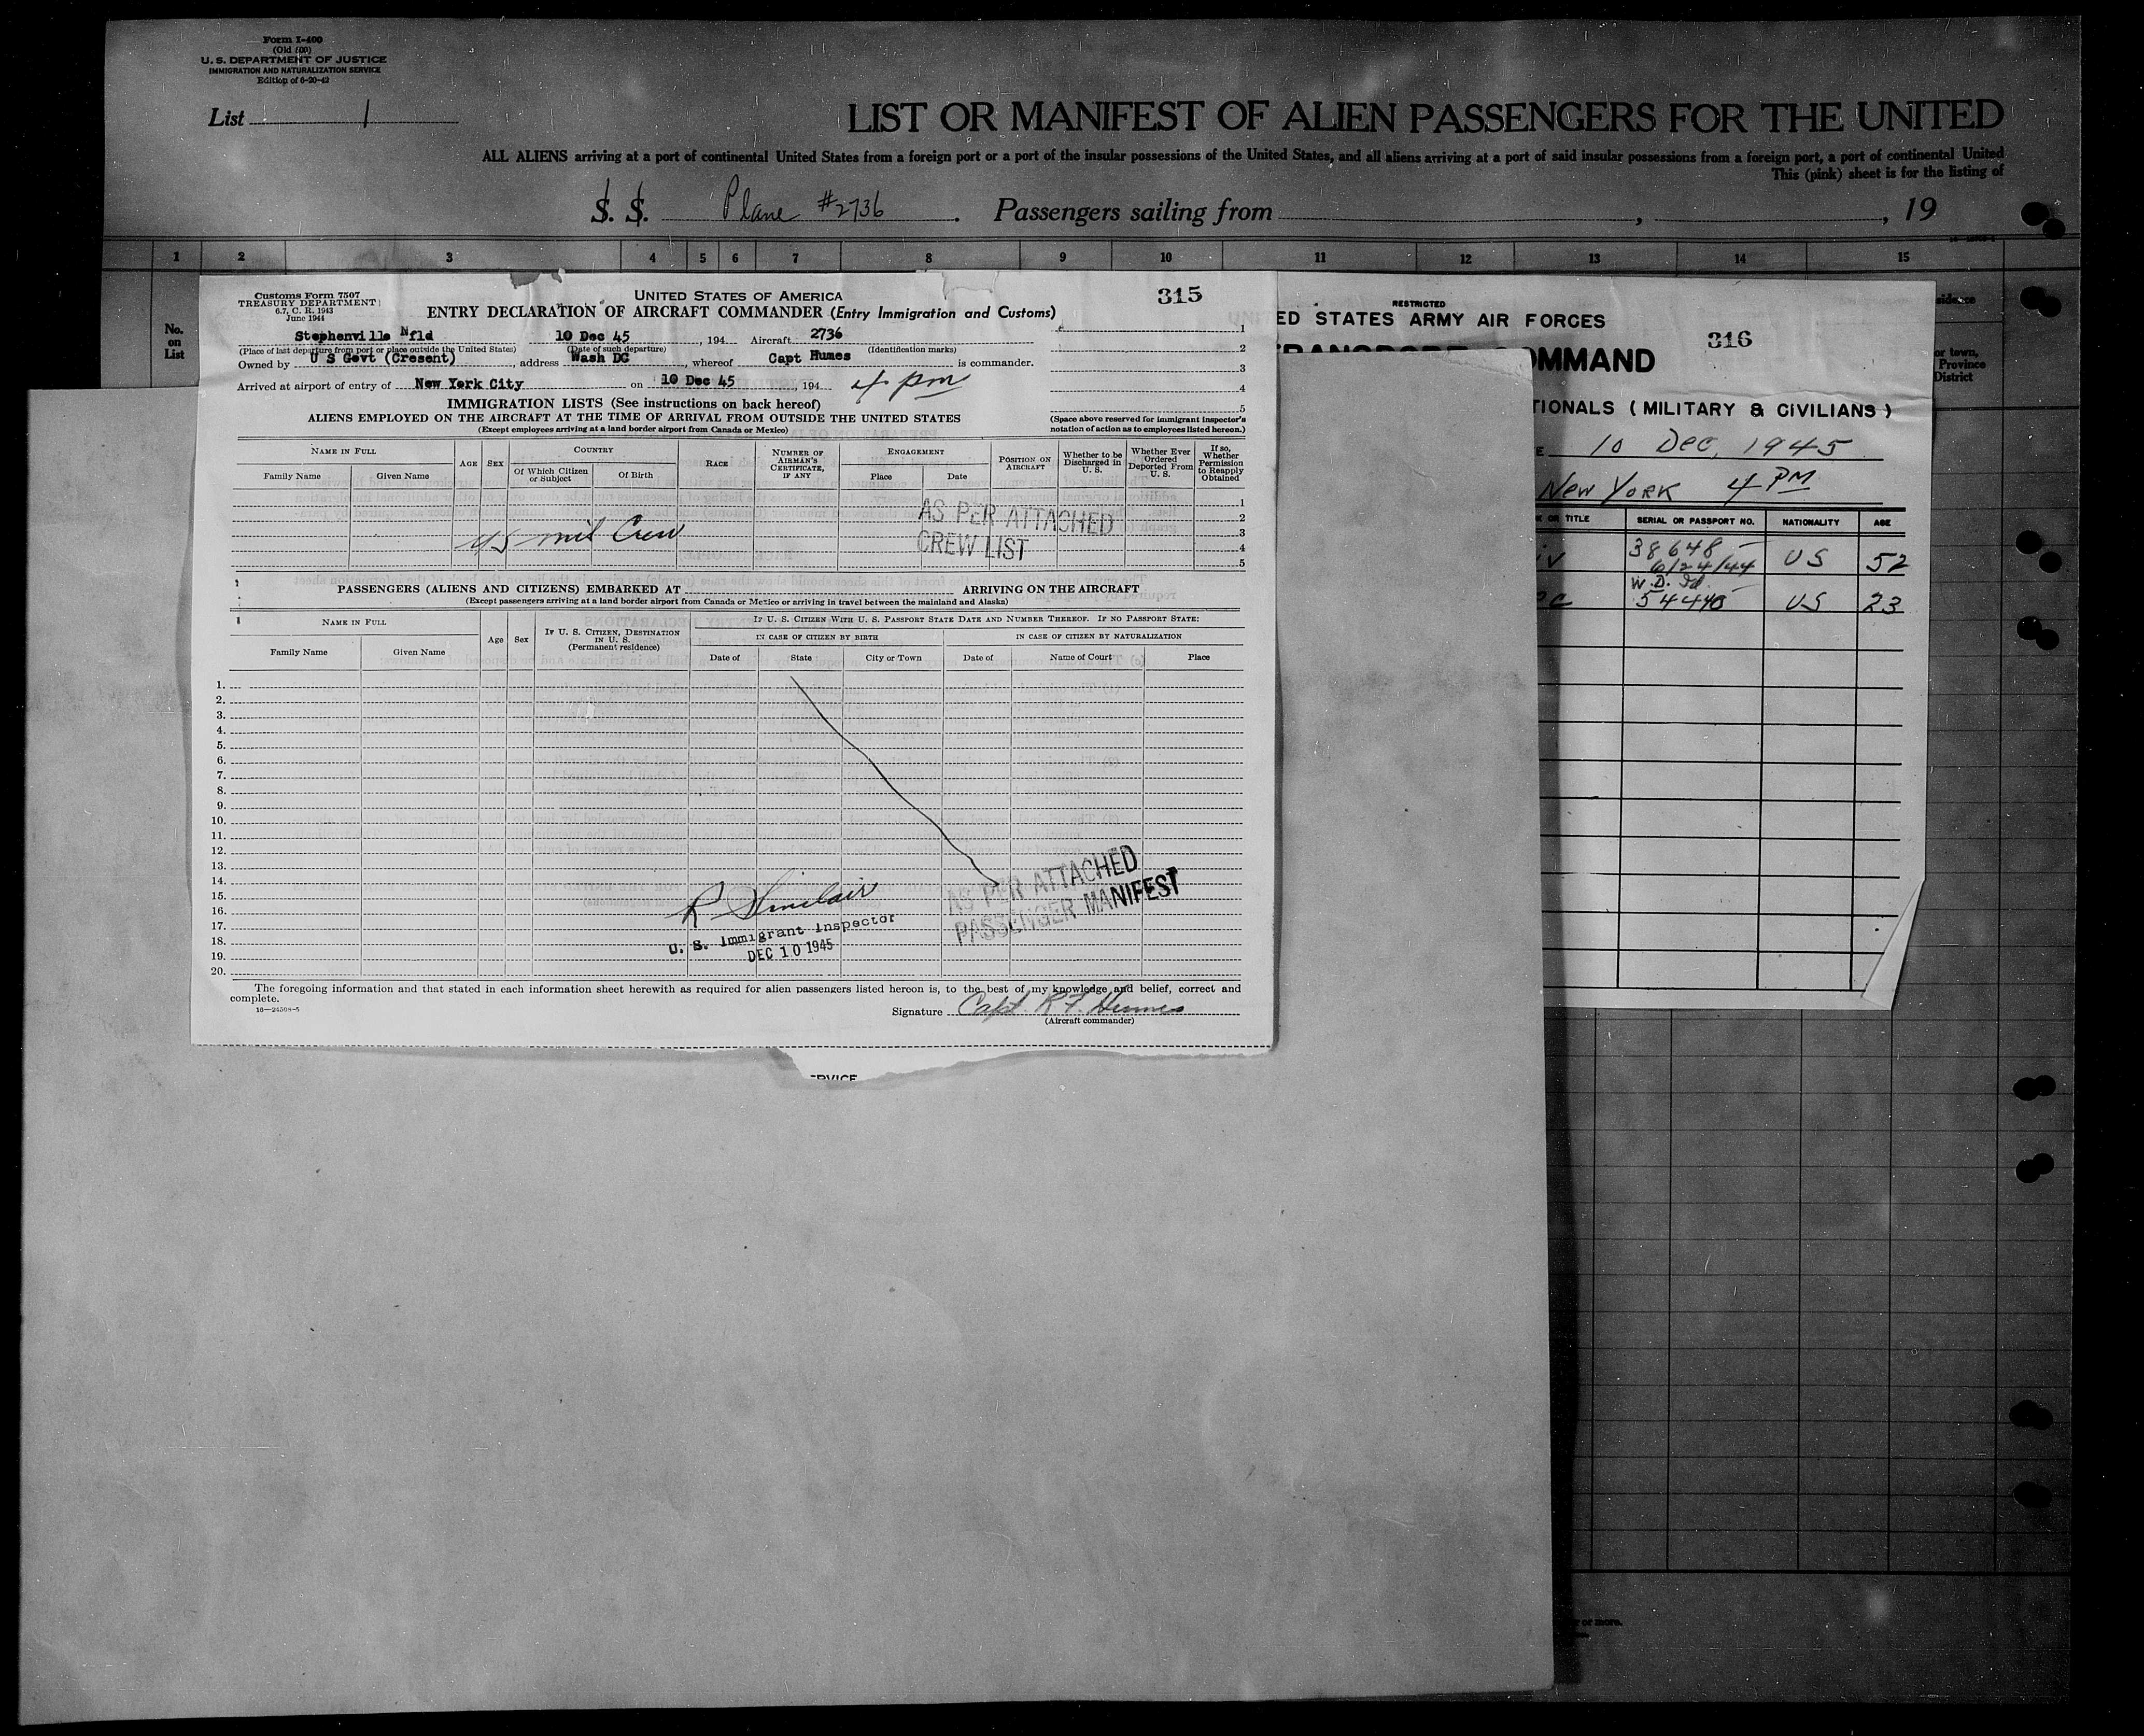 Form I-400
(Old 500)
U. S. DEPARTMENT OF JUSTICE
IMMIGRATION AND NATURALIZATION SERVICE
Edition of 6-20-42
List 1
LIST OR MANIFEST OF ALIEN PASSENGERS FOR THE UNITED
ALL ALIENS arriving at a port of continental United States from a foreign port or a port of the insular possessions of the United States, and all aliens arriving at a port of said insular possessions from a foreign port, a port of continental United
This (pink) sheet is for the listing of
S. S. Plane #2736 . Passengers sailing from , , 19
1 2 3 4 5 6 7 8 9 10 11 12 13 14 15
No. on List
Customs Form 7507
TREASURY DEPARTMENT
6.7, C. R. 1943
June 1944
UNITED STATES OF AMERICA
315
ENTRY DECLARATION OF AIRCRAFT COMMANDER (Entry Immigration and Customs)
Stephenville Nfld 10 Dec 45 , 194 Aircraft 2736
(Place of last departure from port or place outside the United States) (Date of such departure) (Identification marks)
Owned by U S Govt (Cresent) , address Wash DC , whereof Capt Humes is commander.
Arrived at airport of entry of New York City on 10 Dec 45 , 194 4 pm
1
2
3
4
5
IMMIGRATION LISTS (See instructions on back hereof)
ALIENS EMPLOYED ON THE AIRCRAFT AT THE TIME OF ARRIVAL FROM OUTSIDE THE UNITED STATES
(Except employees arriving at a land border airport from Canada or Mexico)
(Space above reserved for immigrant inspector's
notation of action as to employees listed hereon.)
NAME IN FULL
Family Name Given Name
AGE SEX
COUNTRY
Of Which Citizen or Subject Of Birth
RACE
NUMBER OF AIRMAN'S CERTIFICATE, IF ANY
ENGAGEMENT
Place Date
POSITION ON AIRCRAFT
Whether to be Discharged in U. S.
Whether Ever Ordered Deported From U. S.
If so, Whether Permission to Reapply Obtained
1
2
3
4
5
US mil Crew
AS PER ATTACHED
CREW LIST
PASSENGERS (ALIENS AND CITIZENS) EMBARKED AT ARRIVING ON THE AIRCRAFT
(Except passengers arriving at a land border airport from Canada or Mexico or arriving in travel between the mainland and Alaska)
NAME IN FULL
Family Name Given Name
Age Sex
IF U. S. CITIZEN, DESTINATION IN U. S.
(Permanent residence)
IF U. S. CITIZEN WITH U. S. PASSPORT STATE DATE AND NUMBER THEREOF. IF NO PASSPORT STATE:
IN CASE OF CITIZEN BY BIRTH IN CASE OF CITIZEN BY NATURALIZATION
Date of State City or Town Date of Name of Court Place
1.
2.
3.
4.
5.
6.
7.
8.
9.
10.
11.
12.
13.
14.
15.
16.
17.
18.
19.
20.
R Sinclair
U. S. Immigrant Inspector
DEC 10 1945
AS PER ATTACHED
PASSENGER MANIFEST
The foregoing information and that stated in each information sheet herewith as required for alien passengers listed hereon is, to the best of my knowledge and belief, correct and
complete.
16—24508-5
Signature Capt. R F. Humes
(Aircraft commander)
ERVICE
RESTRICTED
ED STATES ARMY AIR FORCES
316
TRANSPORT COMMAND
TIONALS ( MILITARY & CIVILIANS )
E 10 Dec, 1945
New York 4 PM
K OR TITLE SERIAL OR PASSPORT NO. NATIONALITY AGE
iv 38648 – 6/24/44 US 52
W.D. Id. 54440 – US 23
or town,
Province
District
or more.